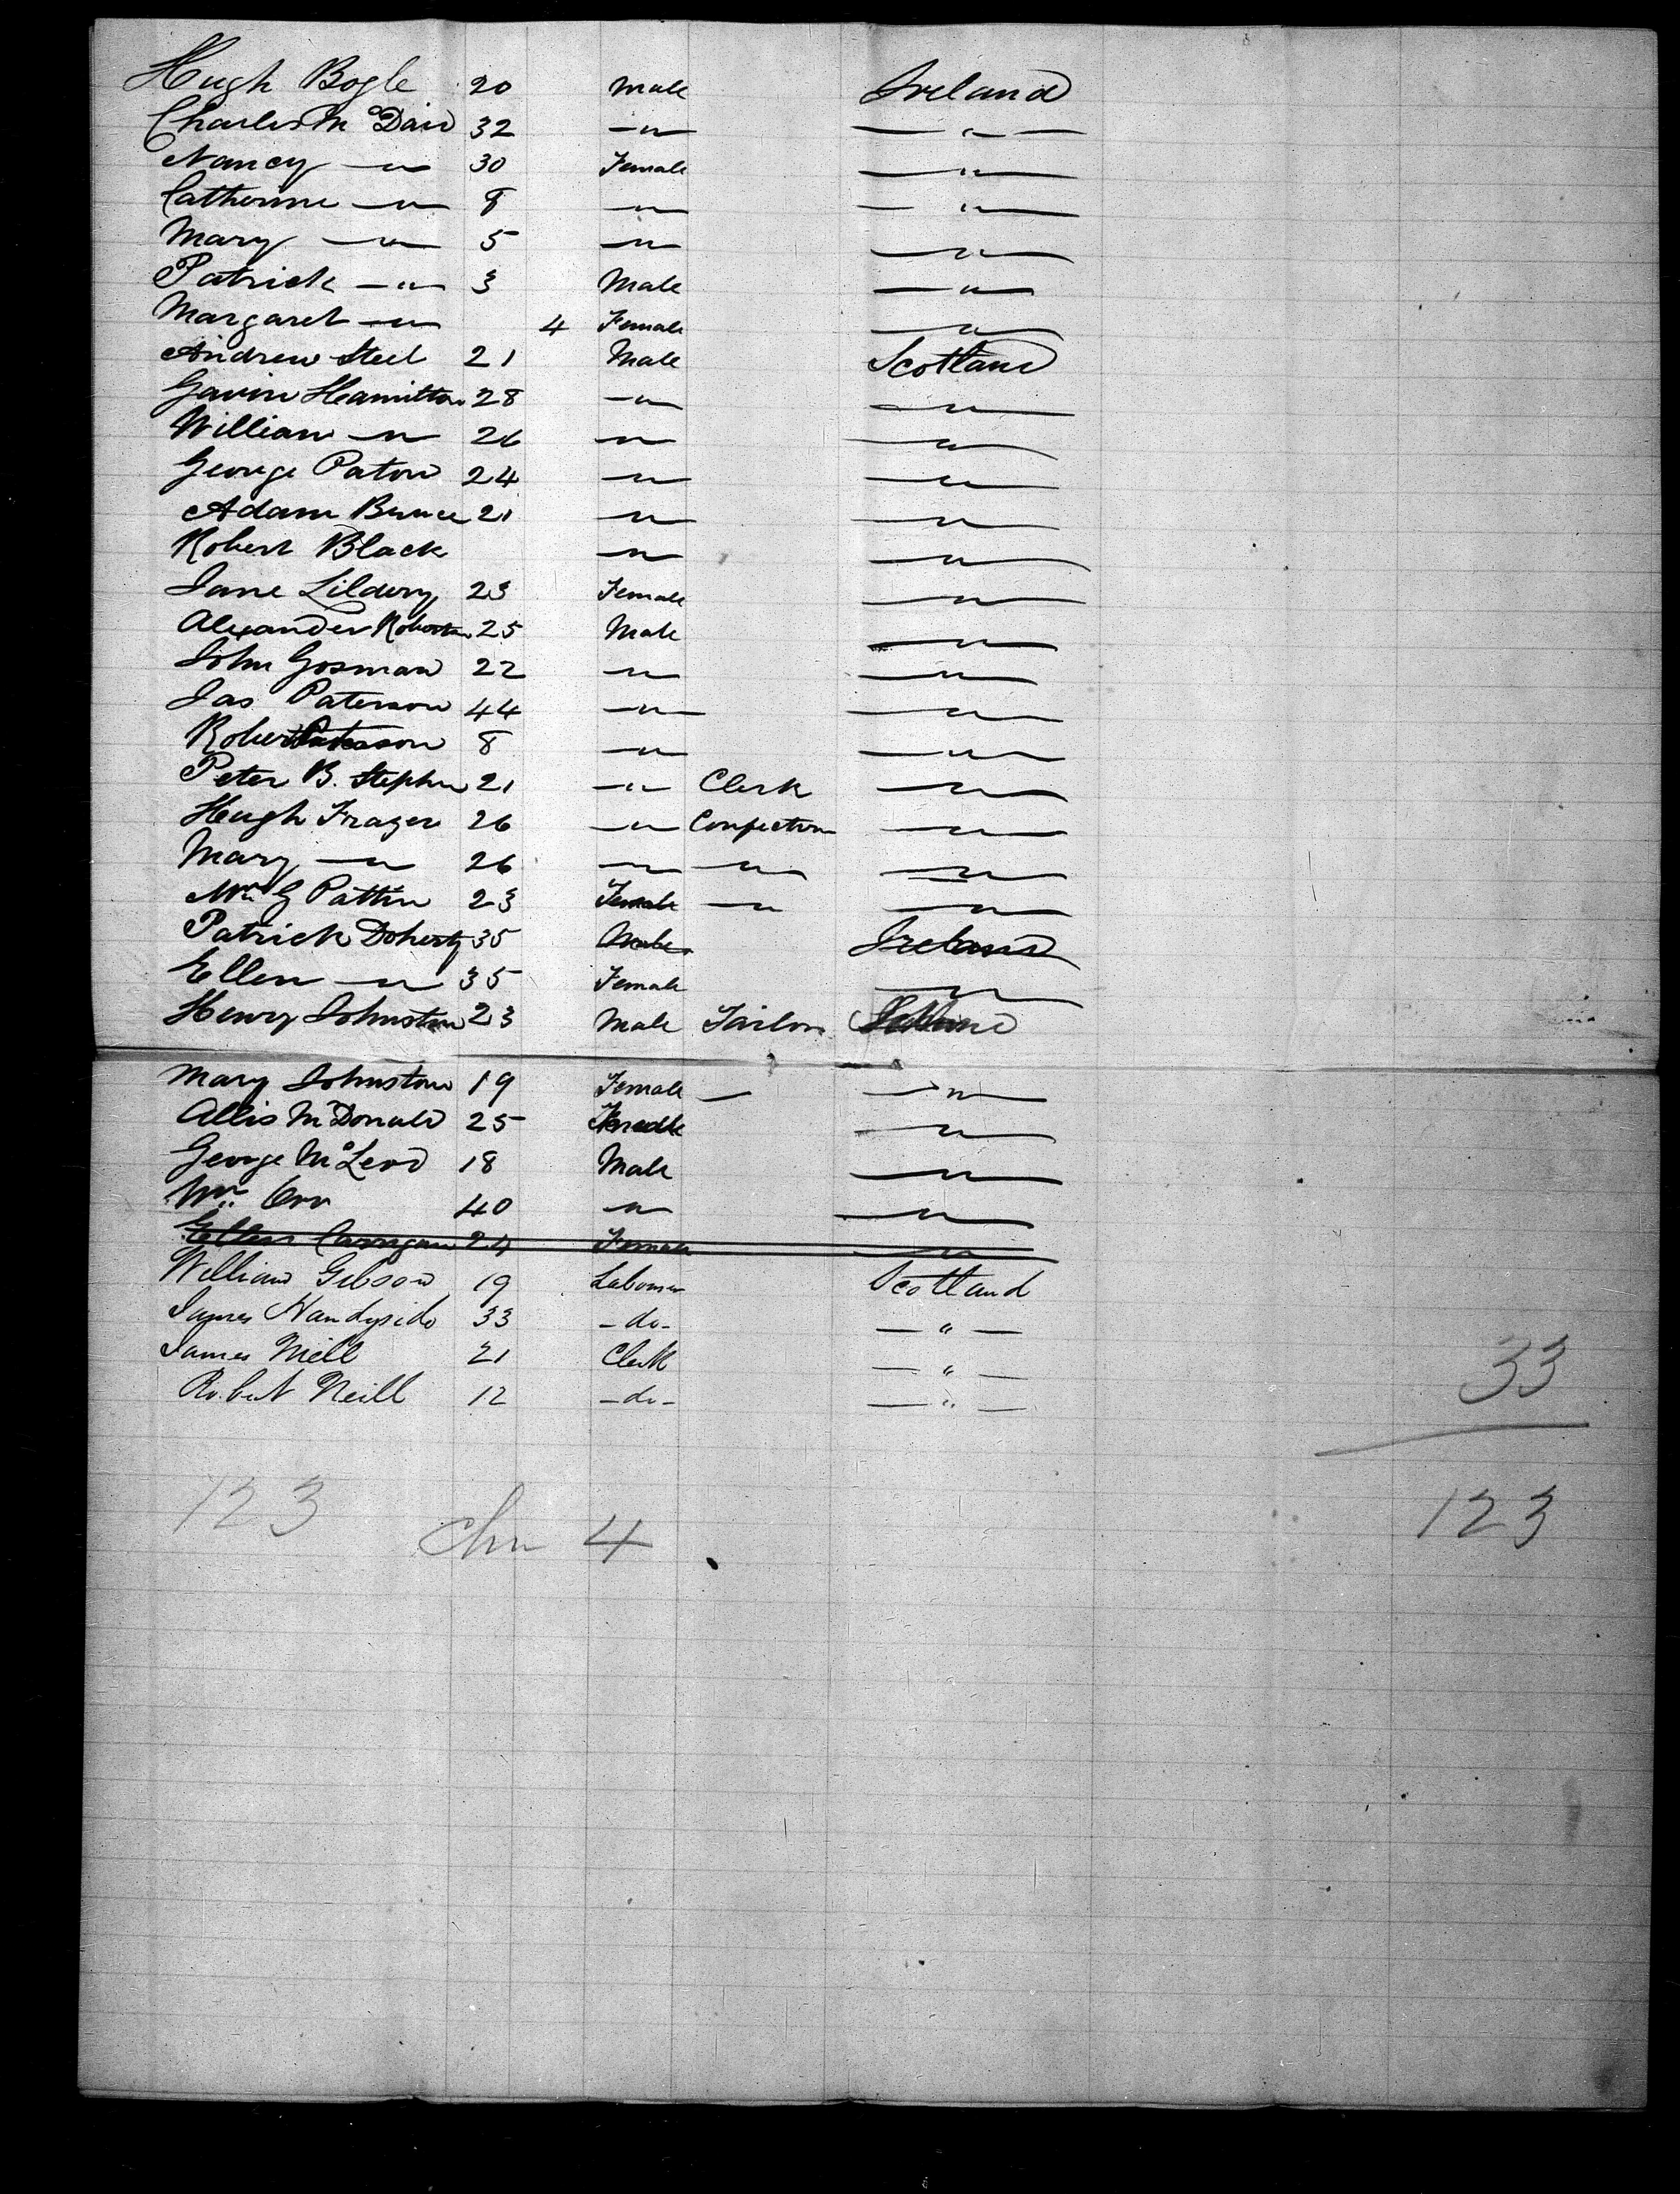 Hugh Bogle 20 Male Ireland
Charles McDaid 32 — " — — " —
Nancy — " — 30 Female — " —
Catherine — " — 8 — " — — " —
Mary — " — 5 — " — — " —
Patrick — " — 3 Male — " —
Margaret — " — 4 Female — " —
Andrew Steel 21 Male Scotland
Gavin Hamilton 28 — " — — " —
William — " — 26 — " — — " —
George Paton 24 — " — — " —
Adam Bruce 21 — " — — " —
Robert Black — " — — " —
Jane 23 Female — " —
Alexander 25 Male — " —
John Gosman 22 — " — — " —
Jas Paterson 44 — " — — " —
Robert Paterson 8 — " — — " —
Peter B. Stephen 21 — " — Clerk — " —
Hugh Frazer 26 — " — — " —
Mary — " — 26 — " — — " — — " —
G 23 Female — " — — " —
Patrick Doherty 35 Male Ireland
Ellen — " — 35 Female — " —
Henry Johnston 23 Male Tailor
Mary Johnston 19 Female — — " —
Allis McDonald 25 — " —
George McLeod 18 Male — " —
Wm Orr 40 — " — — " —
Ellen 24 Female — " —
William Gibson 19 Labourer Scotland
James Handyside 33 - do - — " —
James Neill 21 Clerk — " —
Robert Neill 12 - do - — " —
33
123
123 4